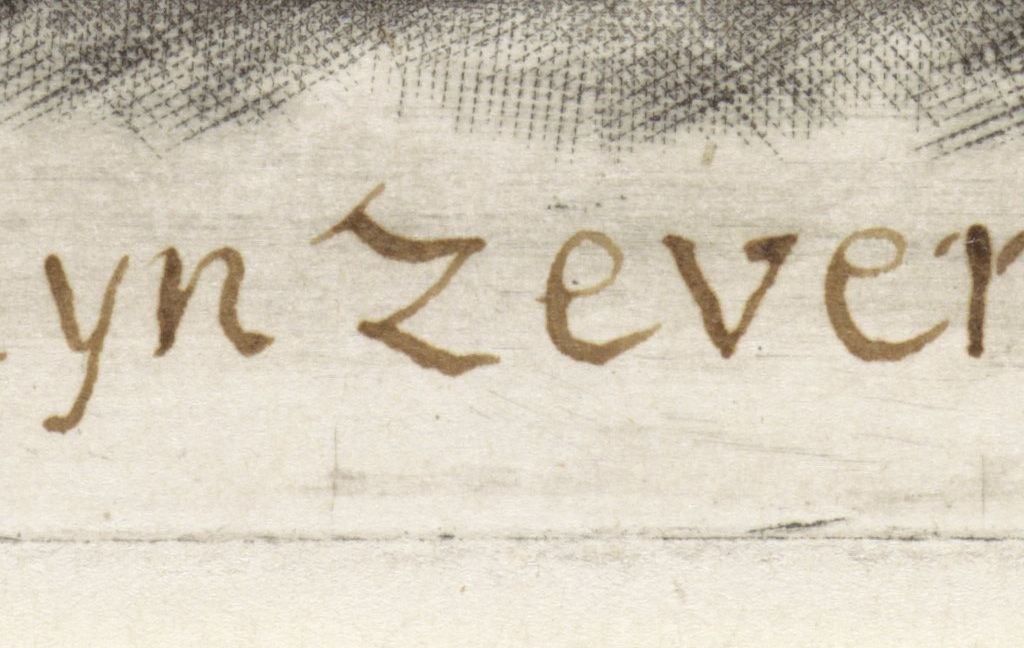 yn zever